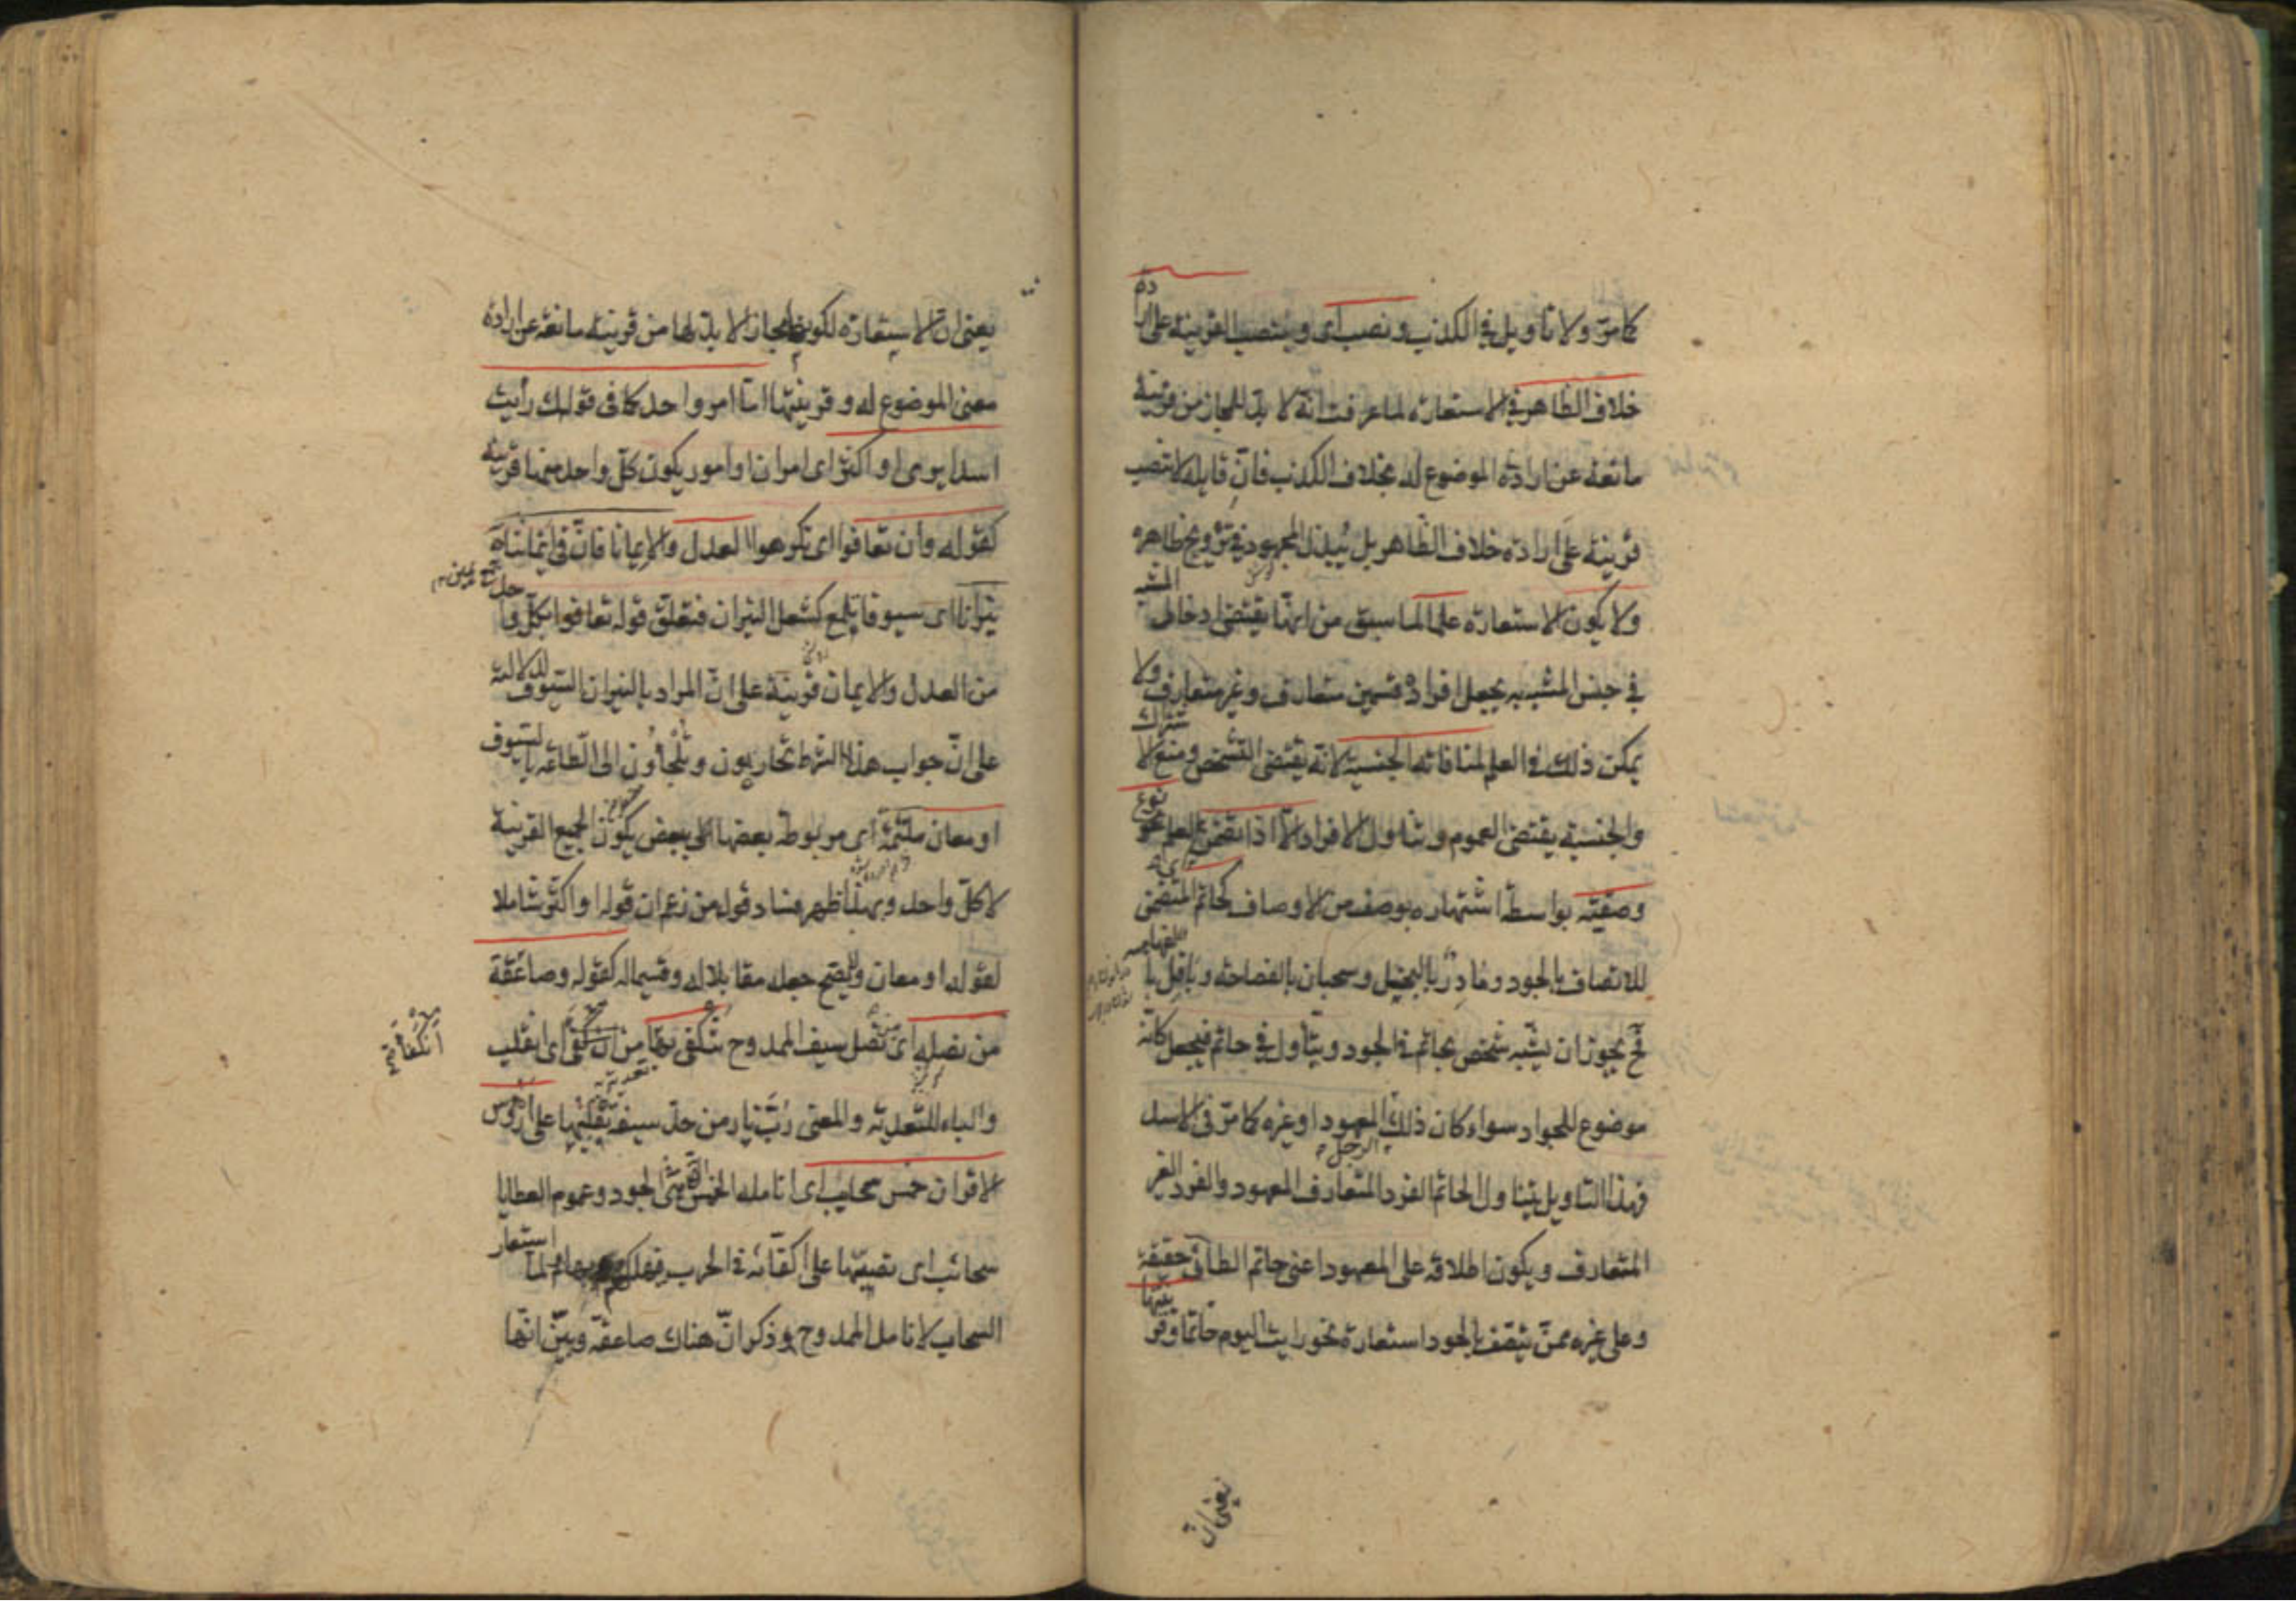 كما مرّ ولا تأويل في الكذب ونصب اى وينصب القرينة على ارادة
خلاف الظاهر في الاستعارة لما عرفت انّه لا بدّ للمجاز من قرينة
مانعة عن ارادة الموضوع له بخلاف الكذب فانّ قايله لا تنصب
قرينة على ارادة خلاف الظّاهر بل يُبذل المجهود في ترويج ظاهره
ولا يكون الاستعارة علما لما سبق من انّها يقتضى ادخال المشبّه
في جنس المشبه به بجعل افراده قسمين متعارف وغير متعارف ولا
يمكن ذلك في العلم لمنافاته الجنسية لانّه يقتضى التشخّص ومنع الاشتراك
والجنسية يقتضى العموم وتناول الافراد الّا اذا تضمّن العلم نوع
وصفيّة بواسطة اشتهاره بوصف من الاوصاف كحاتم المتضمّن
للاتصاف بالجود ومادِر بالبخل وسحبان بالفصاحة وباقل بالفهاهة
فح يجوز ان يشبّه شخص بحاتم في الجود ويتأول في حاتم فيجعل كانّه
موضوع للجواد سواء كان ذلك الرجل المعهود او غيره كما مرّ في الاسد
فبهذا التاويل يتناول الحاتم الفرد المتعارف المعهود والفرد الغير
المتعارف ويكون اطلاقه على المعهود اعنى حاتم الطائى حقيقة
وعلى غيره ممّن يتّصف بالجود استعارة نحو رايت اليوم حاتما وقرينتها
يعنى انّ
يعنى انّ الاستعارة لكونها مجازا لا بدّ لها من قرينة مانعة عن ارادة
معنى الموضوع له وقرينتها امّا امر واحد كما فى قولك رأيت
اسدا يرمى او اكثر اى امران او امور يكون كلّ واحد منها قرينة
كقوله وان تعافوا اى تكرهوا العدل والايمانا فانّ فى ايماننا
نيرانا اى سيوفا تلمع كشعل النيران فتعلّق قوله تعافوا بكلّ واحد
من العدل والايمان قرينة على انّ المراد بالنيران السّيوف للدلالة
على انّ جواب هذا الشرط تحاربون وتُلجاؤن الى الطّاعة بالسّيوف
او معان ملتئمة اى مربوطة بعضها الى بعض يكون الجميع القرينة
لا كلّ واحد وبهذا ظهر فساد قول من زعم ان قوله او اكثر شاملا
لقوله او معان ولا يصحّ جعله مقابلا له وقسيما له كقوله وصاعقة
من نصله اى نصل سيف الممدوح تنكفى بها من انكفى اى انقلب
والباء للتعدية والمعنى رُبَّ نار من حدّ سيفه يقلبها على ارؤس
الاقران خمس سحايب اى انامله الخمس الّتى هى فى الجود وعموم العطايا
سحائب اى تصيبها على اكفّائه في الحرب فيهلكهم بها ولمّا استعار
السحاب لانامل الممدوح ذكر انّ هناك صاعقة وبيّن انّها